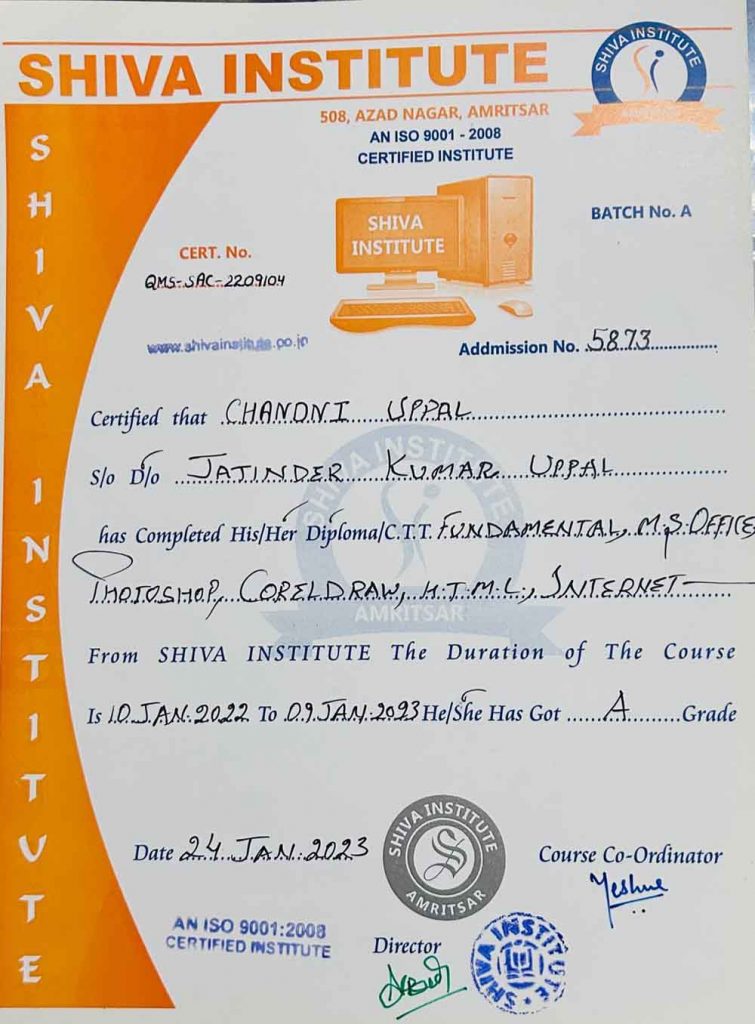 SHIVA INSTITUTE
SHIVA INSTITUTE
508, AZAD NAGAR, AMRITSAR
AN ISO 9001 - 2008
CERTIFIED INSTITUTE
SHIVA INSTITUTE
SHIVA
INSTITUTE
BATCH No. A
CERT. No.
QMS-SAC-2209104
Addmission No. 5873
Certified that CHANDNI UPPAL
S/o D/o JATINDER KUMAR UPPAL
has Completed His/Her Diploma/C.T.T. FUNDAMENTAL, M.S. OFFICE
PHOTOSHOP, CORELDRAW, H.T.M.L., INTERNET
SHIVA INSTITUTE
AMRITSAR
From SHIVA INSTITUTE The Duration of The Course
Is 10 JAN. 2022 To 09 JAN. 2023 He/She Has Got A Grade
Date 24 JAN. 2023
SHIVA INSTITUTE
AMRITSAR
Course Co-Ordinator
AN ISO 9001:2008
CERTIFIED INSTITUTE
Director
SHIVA INSTITUTE